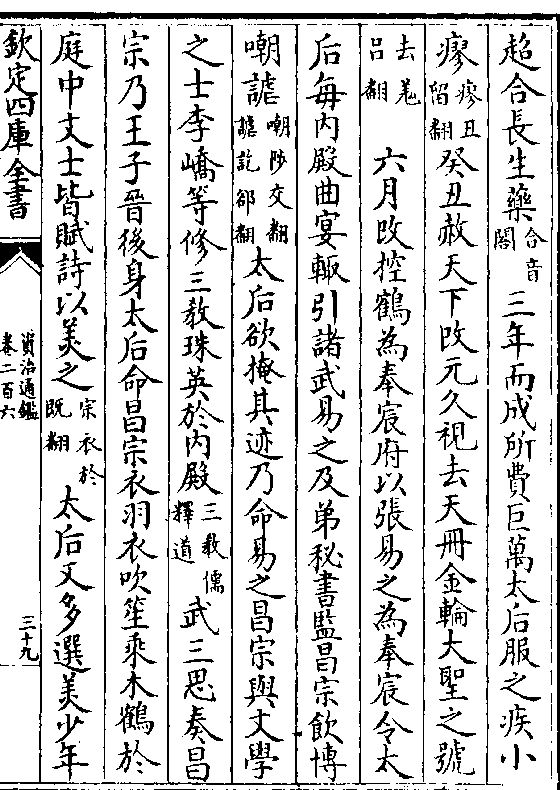 超合長生藥合音閤三年而成所費巨萬太后服之疾小
瘳瘳丑留翻癸丑赦天下改元久視去天冊金輪大聖之號
去羌呂翻六月改控鶴為奉宸府以張易之為奉宸令太
后每内殿曲宴輙引諸武易之及弟秘書監昌宗飲博
嘲謔嘲陟交翻謔訖郤翻太后欲掩其迹乃命易之昌宗與文學
之士李嶠等修三敎珠英於内殿三敎儒釋道武三思奏昌
宗乃王子晉後身太后命昌宗衣羽衣吹笙乘木鶴於
庭中文士皆賦詩以美之宗衣於既翻太后又多選美少年
欽定四庫全書
資治通鑑
卷二百六
三十九